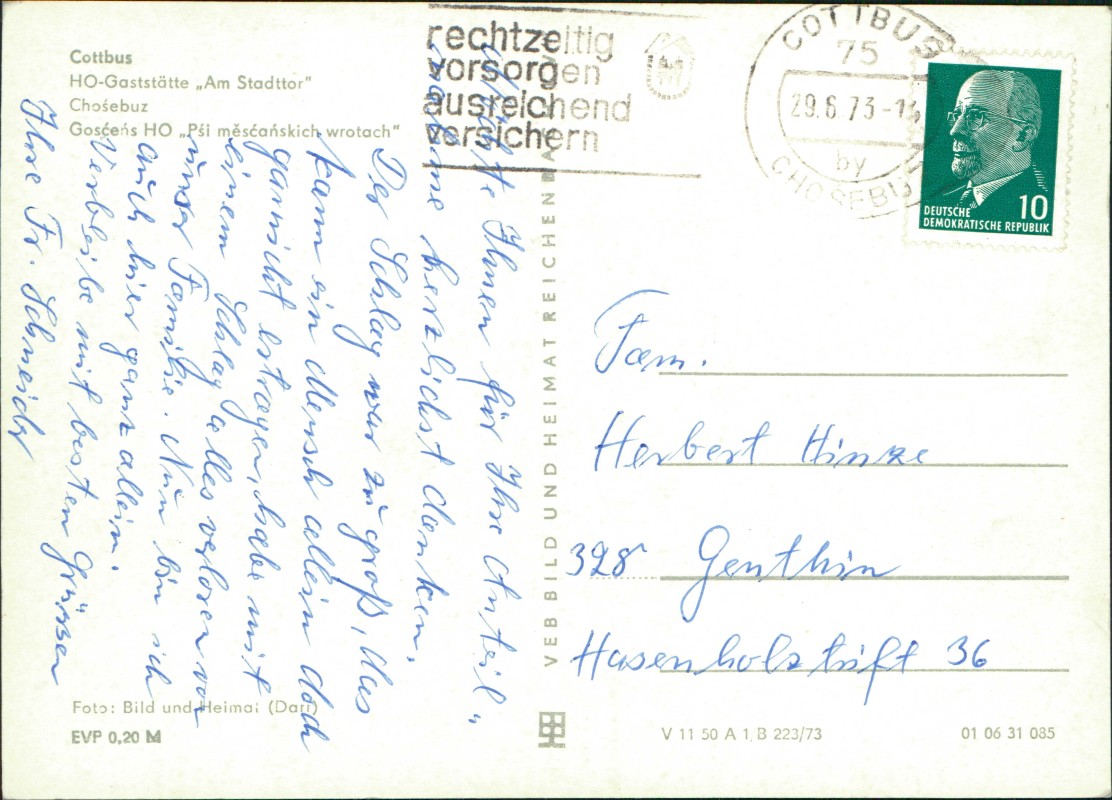 Cottbus
HO-Gaststätte „Am Stadttor"
Chośebuz
Gosćeńs HO „Pši měsćańskich wrotach"
rechtzeitig
vorsorgen
ausreichend
versichern
COTTBUS
75
29.6.73-14
by
CHOSEBUZ
DEUTSCHE
DEMOKRATISCHE REPUBLIK
10
Möchte Ihnen für Ihre Anteil„
nahme herzlichst danken.
Der Schlag war zu groß, das
kann ein Mensch allein doch
garnicht ertragen, habe mit
einem Schlag alles verloren von
unser Familie. Nun bin ich
auch hier ganz allein.
Verbleibe mit besten Grüssen
Ihre Fr. Schneider
VEB BILD UND HEIMAT REICHENBA
Fam.
Herbert Hinze
328 Genthin
Hasenholztrift 36
Foto: Bild und Heimat (Darr)
EVP 0,20 M
V 11 50 A 1, B 223/73
01 06 31 085